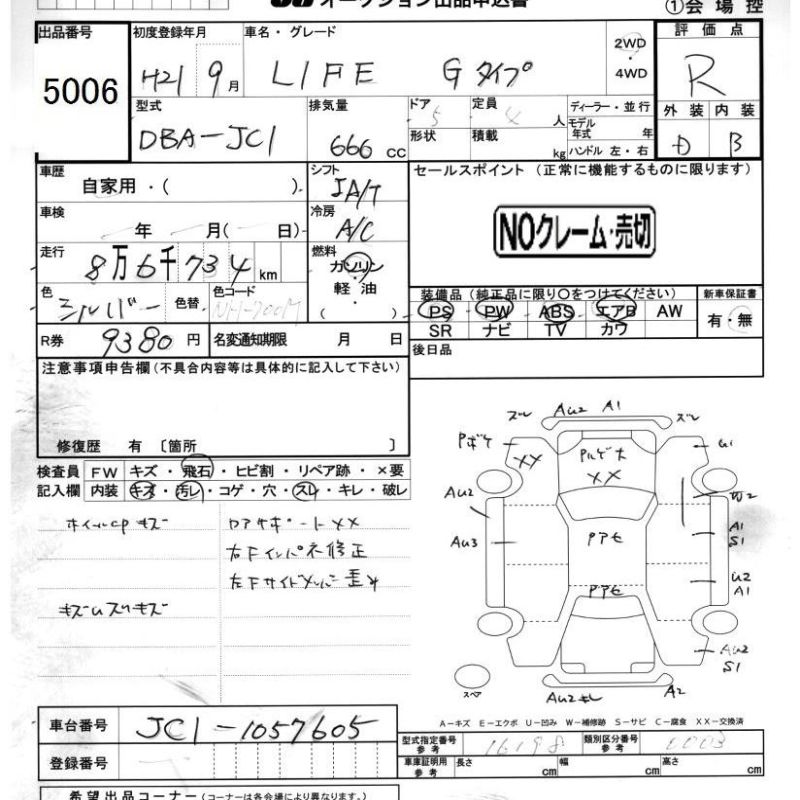 オークション出品申込書
①会場控
出品番号
5006
初度登録年月
H21 9月
車名・グレード
LIFE Gタイプ
2WD
・
4WD
評価点
R
型式
DBA-JC1
排気量
660 cc
ドア
5
定員
4 人
形状
積載
kg
ディーラー・並行
モデル
年式 年
ハンドル 左・右
外装 内装
D B
車歴
自家用・( ).
シフト
IA/T
セールスポイント (正常に機能するものに限ります)
NOクレーム・売切
車検
年 月( 日)
冷房
A/C
走行
8万6千734 km
燃料
ガソリン
軽油
( )
色
シルバー 色替
色コード
NH-700M
装備品 (純正品に限り○をつけてください)
新車保証書
PS PW ABS エアB AW
有・無
SR ナビ TV カワ
R券 9380 円
名変通知期限 月 日
後日品
注意事項申告欄 (不具合内容等は具体的に記入して下さい)
修復歴 有 〔箇所 〕
検査員 FW キズ・飛石・ヒビ割・リペア跡・×要
記入欄 内装 キズ・汚レ・コゲ・穴・スレ・キレ・破レ
ホイルcap キズ
コアサポートXX
右Fインパネ修正
左Fサイドメンバー歪み
ズレ Au2 A1 ズレ
Pボケ
XX
XX
U1
Au2
Au3
W2
A1
S1
U2
A1
PアセPアセ
Au2
S1
スペア
A2
A-キズ E-エクボ U-凹み W-補修跡 S-サビ C-腐食 XX-交換済
車台番号 JC1-1057605
型式指定番号
参考
16198
類別区分番号
参考
0003
登録番号
車庫証明用
参考
長さ cm 幅 cm 高さ cm
希望出品コーナー (コーナーは各会場により異なります。)